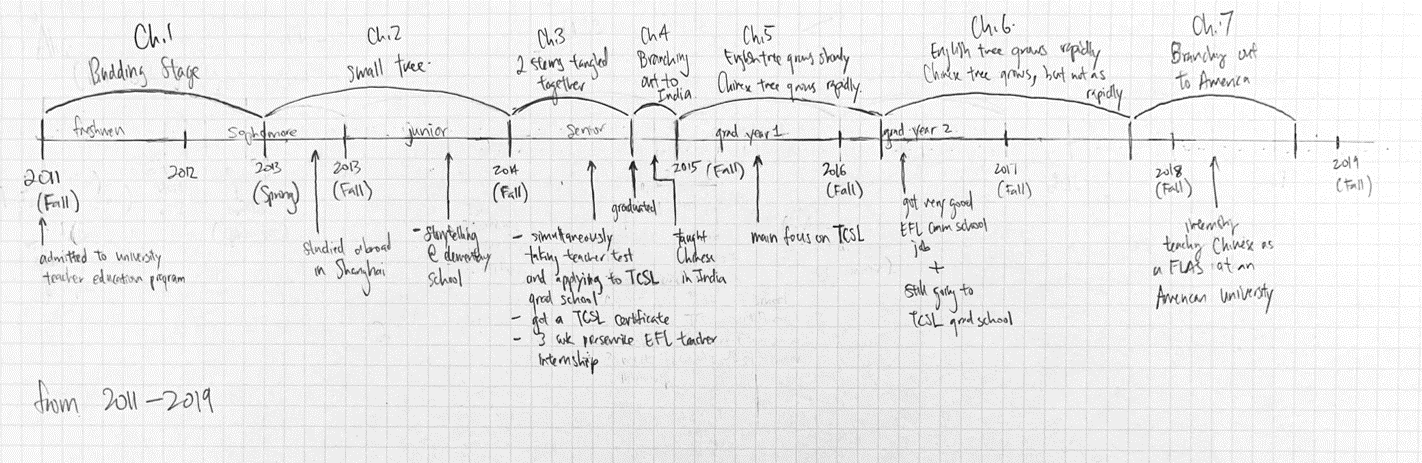 Ch.1
Budding Stage
Ch.2
small tree.
Ch.3
2 stems tangled
together
Ch.4
Branching
out to
India.
Ch.5
English tree grows slowly
Chinese tree grows rapidly.
Ch.6.
English tree grows rapidly
Chinese tree grows, but not as
rapidly
Ch.7
Branching out
to America
freshmen
Sophomore
junior
senior
grad year 1
grad year 2
2011
(Fall)
2012
2013
(Spring)
2013
(Fall)
2014
(Fall)
2015 (Fall)
2016
(Fall)
2017
(Fall)
2018
(Fall)
2019
(Fall)
admitted to university
teacher education program
studied abroad
in Shanghai
- Storytelling
@ elementary
school
graduated
- simultaneously
taking teacher test
and applying to TCSL
grad school
- got a TCSL certificate
- 3 wk preservice EFL teacher
internship
taught
Chinese
in India
main focus on TCSL
got very good
EFL cram school
job
+
still going to
TCSL grad school
internship
teaching Chinese as
a FLAS at an
American university
from 2011-2019